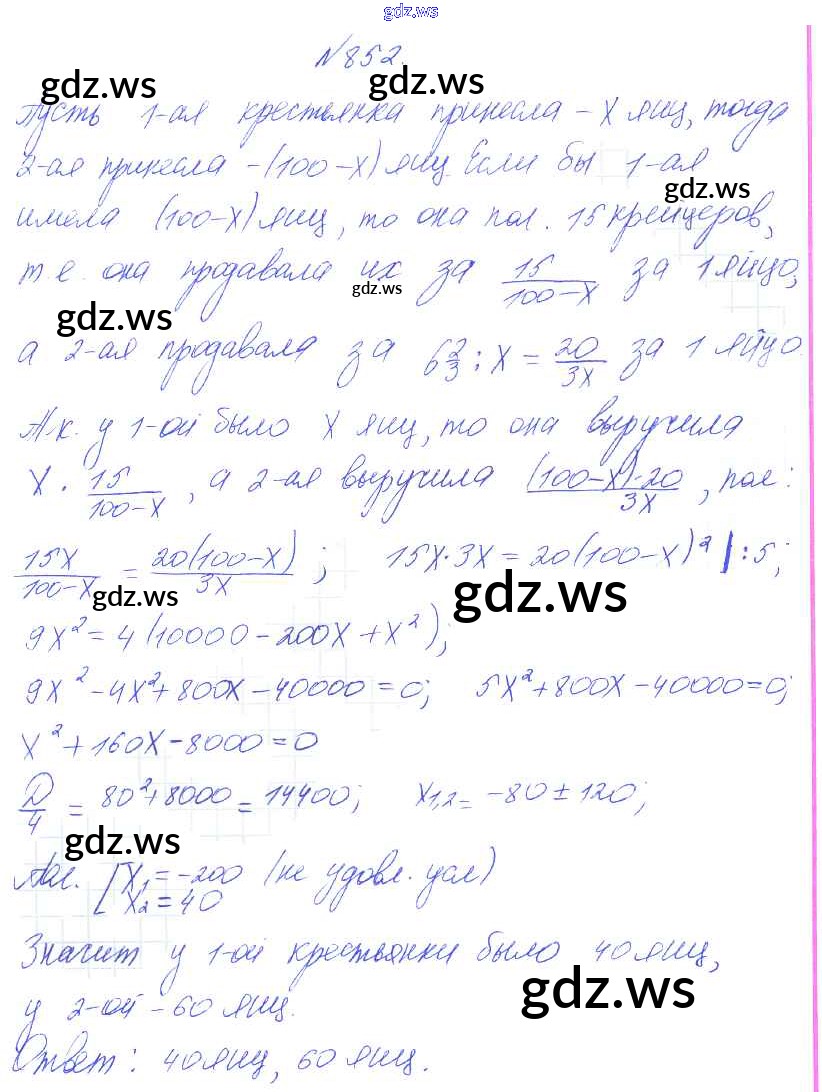 gdz.ws
№852.
gdz.ws gdz.ws
Пусть 1-ая крестьянка принесла – x яиц, тогда
2-ая принесла – (100–x) яиц. Если бы 1-ая
gdz.ws
имела (100–x) яиц, то она пол. 15 крейцеров,
т.е. она продавала их за 15/(100–x) за 1 яйцо,
gdz.ws
gdz.ws
а 2-ая продавала за 6 2/3 : x = 20/3x за 1 яйцо.
Т.к. у 1-ой было x яиц, то она выручила
x · 15/(100–x), а 2-ая выручила (100–x)·20/3x, пол:
15x/(100–x) = 20(100–x)/3x; 15x·3x = 20(100–x)² |:5;
gdz.ws gdz.ws
9x² = 4(10000–200x+x²);
9x²–4x²+800x–40000=0; 5x²+800x–40000=0;
x²+160x–8000=0
D/4 = 80²+8000 = 14400; x1,2 = –80±120;
gdz.ws
Пол. [x1 = –200 (не удовл. усл)
x2 = 40
Значит у 1-ой крестьянки было 40 яиц,
gdz.ws
у 2-ой – 60 яиц.
Ответ: 40 яиц, 60 яиц.